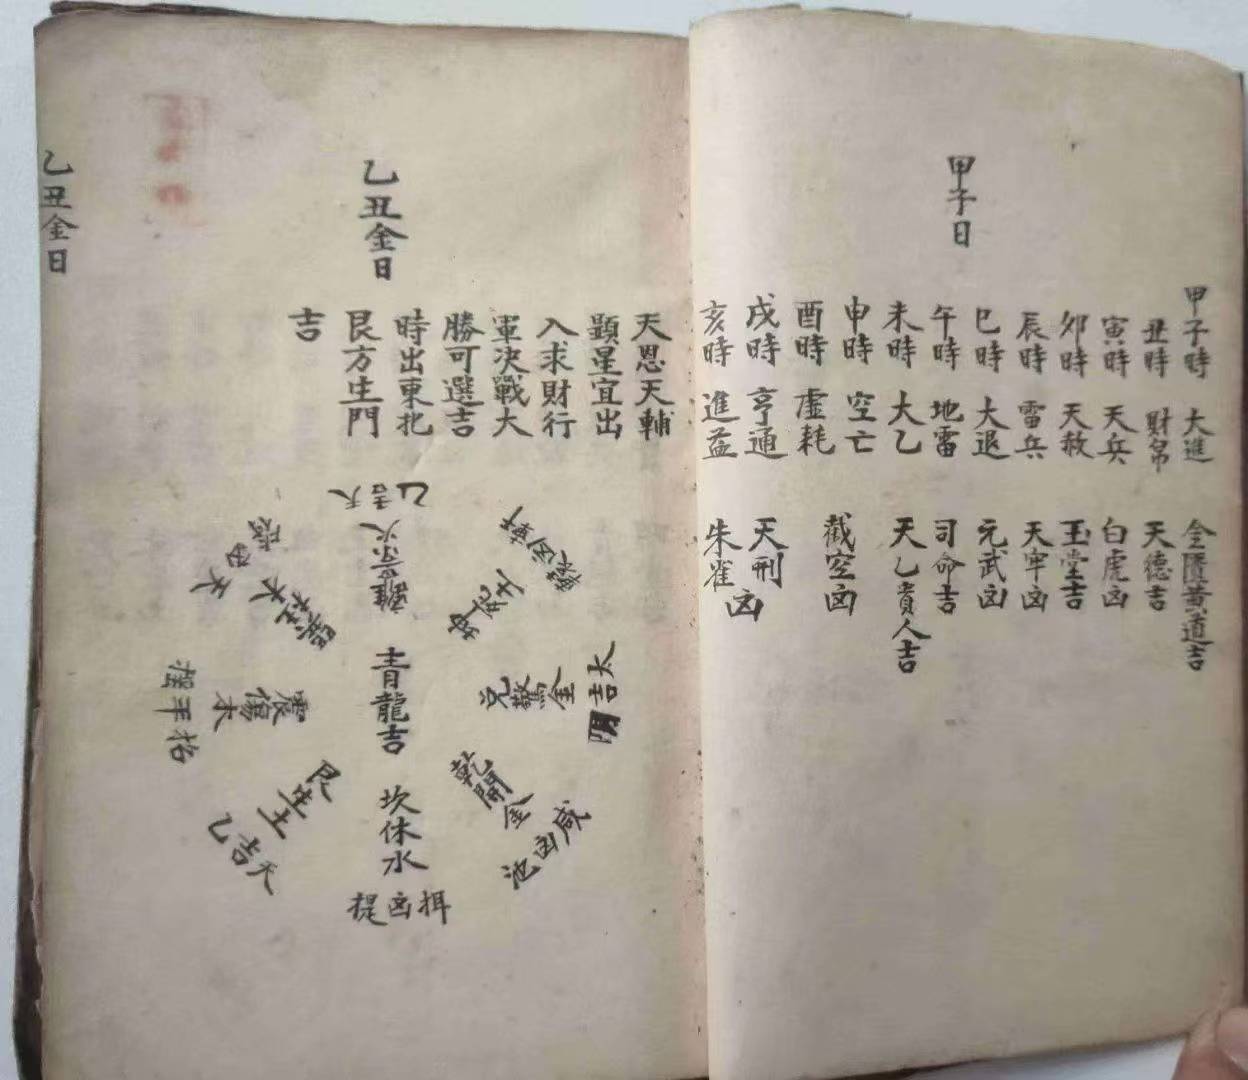 甲子日
甲子時 大進 金匱黄道吉
丑時 財帛 天德吉
寅時 天兵 白虎凶
卯時 天赦 玉堂吉
辰時 雷兵 天牢凶
巳時 大退 元武凶
午時 地雷 司命吉
未時 大乙 天乙貴人吉
申時 空亡
酉時 虛耗
截空凶
戌時 亨通 天刑
亥時 進益 朱雀
凶
乙丑金日
天恩天輔
顕星宜出
入求財行
軍决戰大
勝可選吉
時出東北
艮方生門
吉
乙吉天
離景火
坤死土
軒凶轅
兌驚金
太吉陰
乾開金
咸凶池
坎休水
摂凶提
艮生土
天吉乙
震傷木
招平搖
青龍吉
乙丑金日